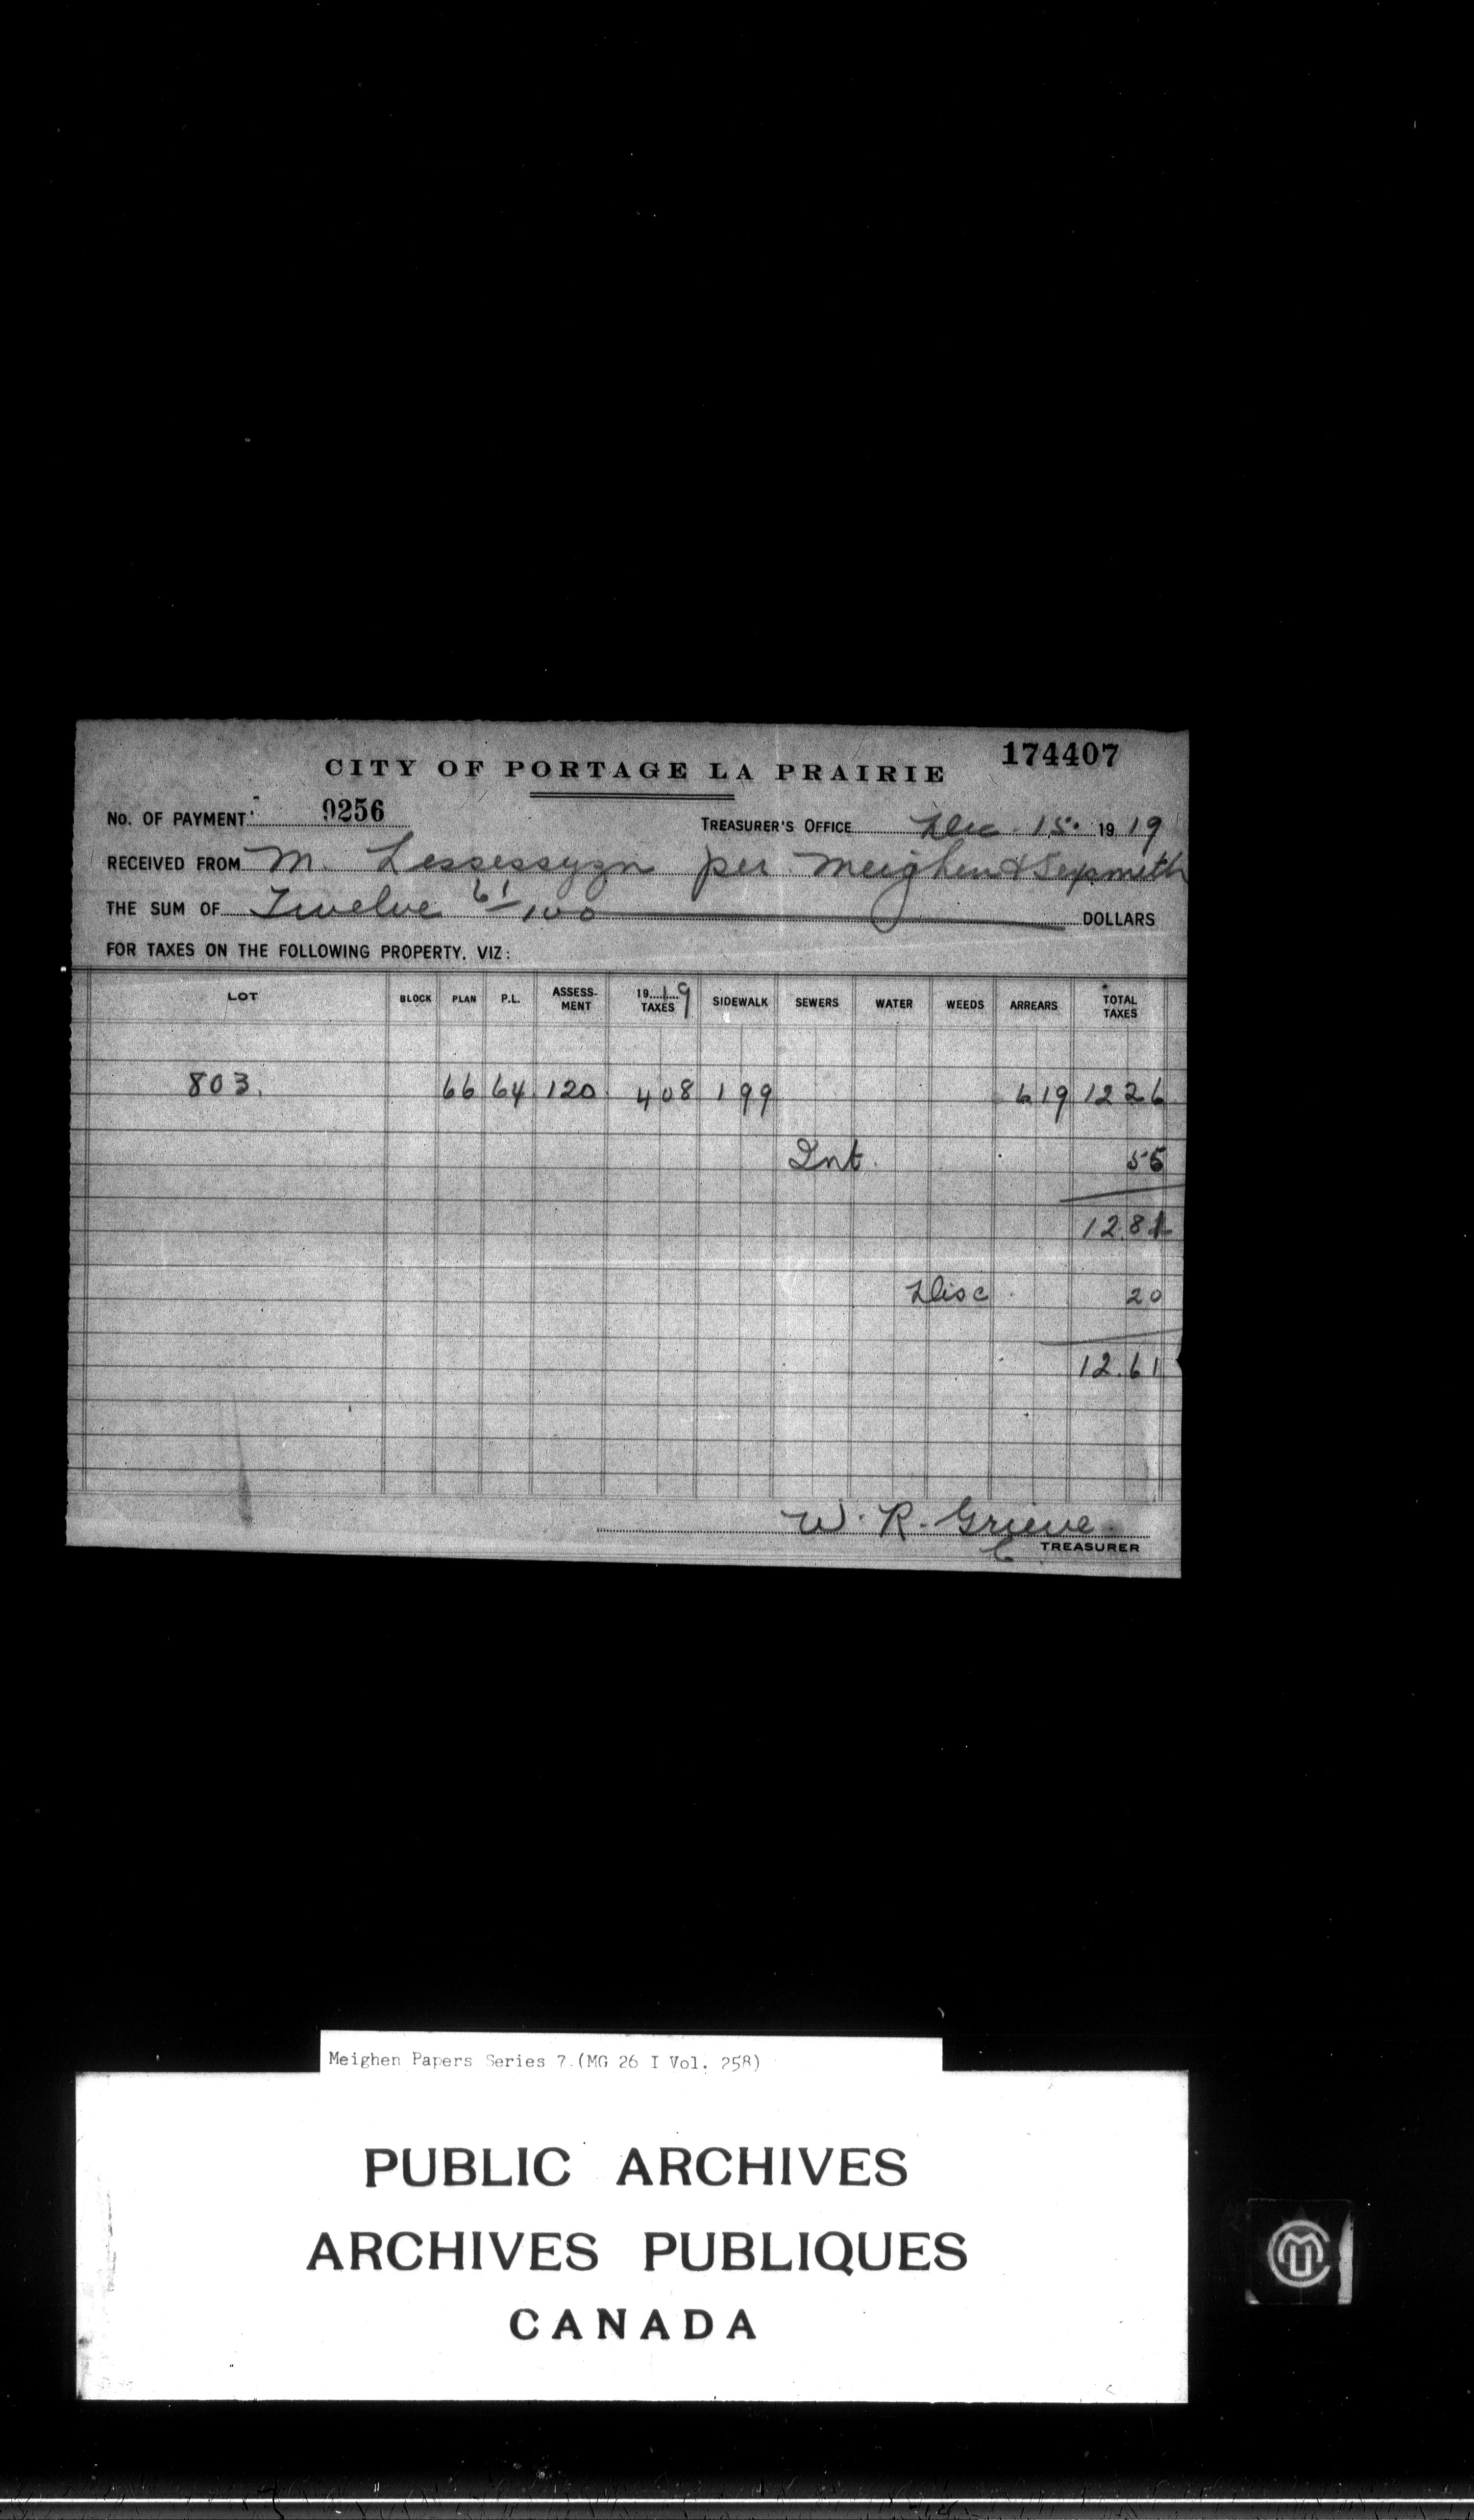 174407
CITY OF PORTAGE LA PRAIRIE
No. OF PAYMENT 9256 TREASURER'S OFFICE Dec 15. 1919
RECEIVED FROM M. Lessessyzn per Meighen & Sexsmith
THE SUM OF Twelve 61/100 DOLLARS
FOR TAXES ON THE FOLLOWING PROPERTY, VIZ:
LOT BLOCK PLAN P.L. ASSESS-MENT 1919 TAXES SIDEWALK SEWERS WATER WEEDS ARREARS TOTAL TAXES
803. 66 64 120. 408 199 619 1226
Int. 55
12.81
Disc 20
12.61
W. R. Grieve
TREASURER
Meighen Papers Series 7 (MG 26 I Vol. 258)
PUBLIC ARCHIVES
ARCHIVES PUBLIQUES
CANADA